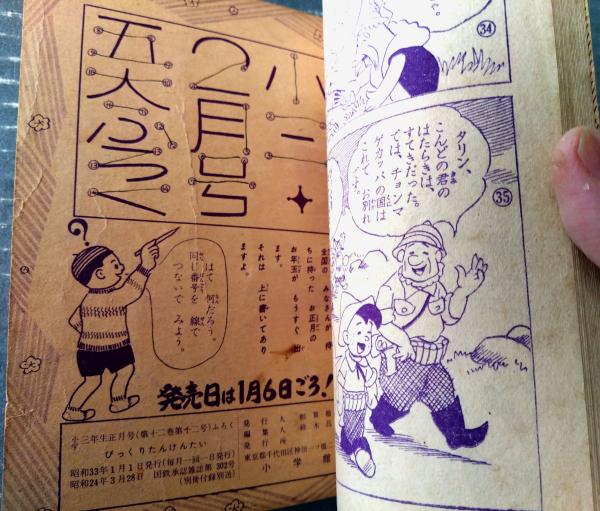 34
35
タリン、
こんどの君の
はたらきは、
すてきだった。
では、チョンマ
ゲカッパの国は
これで、お別れ
です。
小三
2月号
五大ふろく
全国の みなさんが 待
ちに待った お正月の
お年玉が もうすぐ 出
ますよ。
それは 上に書いてあり
はて 何だろう。
同じ番号を 線で
つないで みよう。
?
発売日は1月6日ごろ!
小三年生正月号(第十二巻第十二号)ふろく
びっくりたんけんたい
昭和33年1月1日発行(毎月一回一日発行)
昭和24年3月28日 国鉄承認雑誌第302号
(別冊付録別送)
発行人
編集人
発行所
東京都千代田区神田一ツ橋
小学館